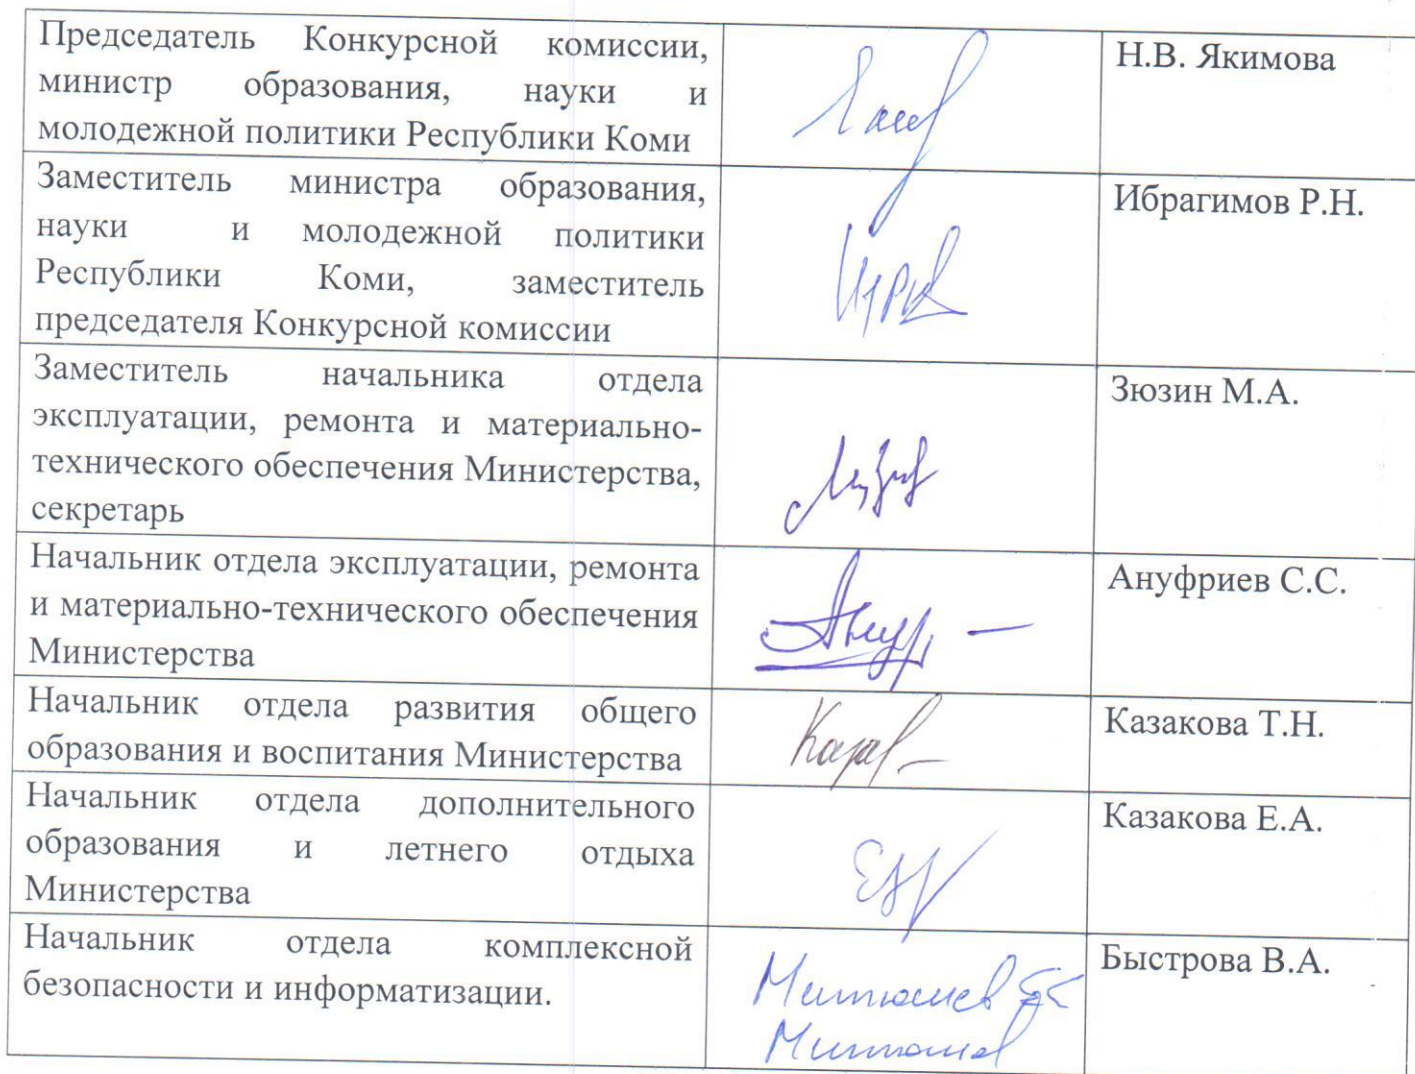 Председатель Конкурсной комиссии,
министр образования, науки и
молодежной политики Республики Коми
Н.В. Якимова
Заместитель министра образования,
науки и молодежной политики
Республики Коми, заместитель
председателя Конкурсной комиссии
Ибрагимов Р.Н.
Заместитель начальника отдела
эксплуатации, ремонта и материально-
технического обеспечения Министерства,
секретарь
Зюзин М.А.
Начальник отдела эксплуатации, ремонта
и материально-технического обеспечения
Министерства
Ануфриев С.С.
Начальник отдела развития общего
образования и воспитания Министерства
Казакова Т.Н.
Начальник отдела дополнительного
образования и летнего отдыха
Министерства
Казакова Е.А.
Начальник отдела комплексной
безопасности и информатизации.
Быстрова В.А.